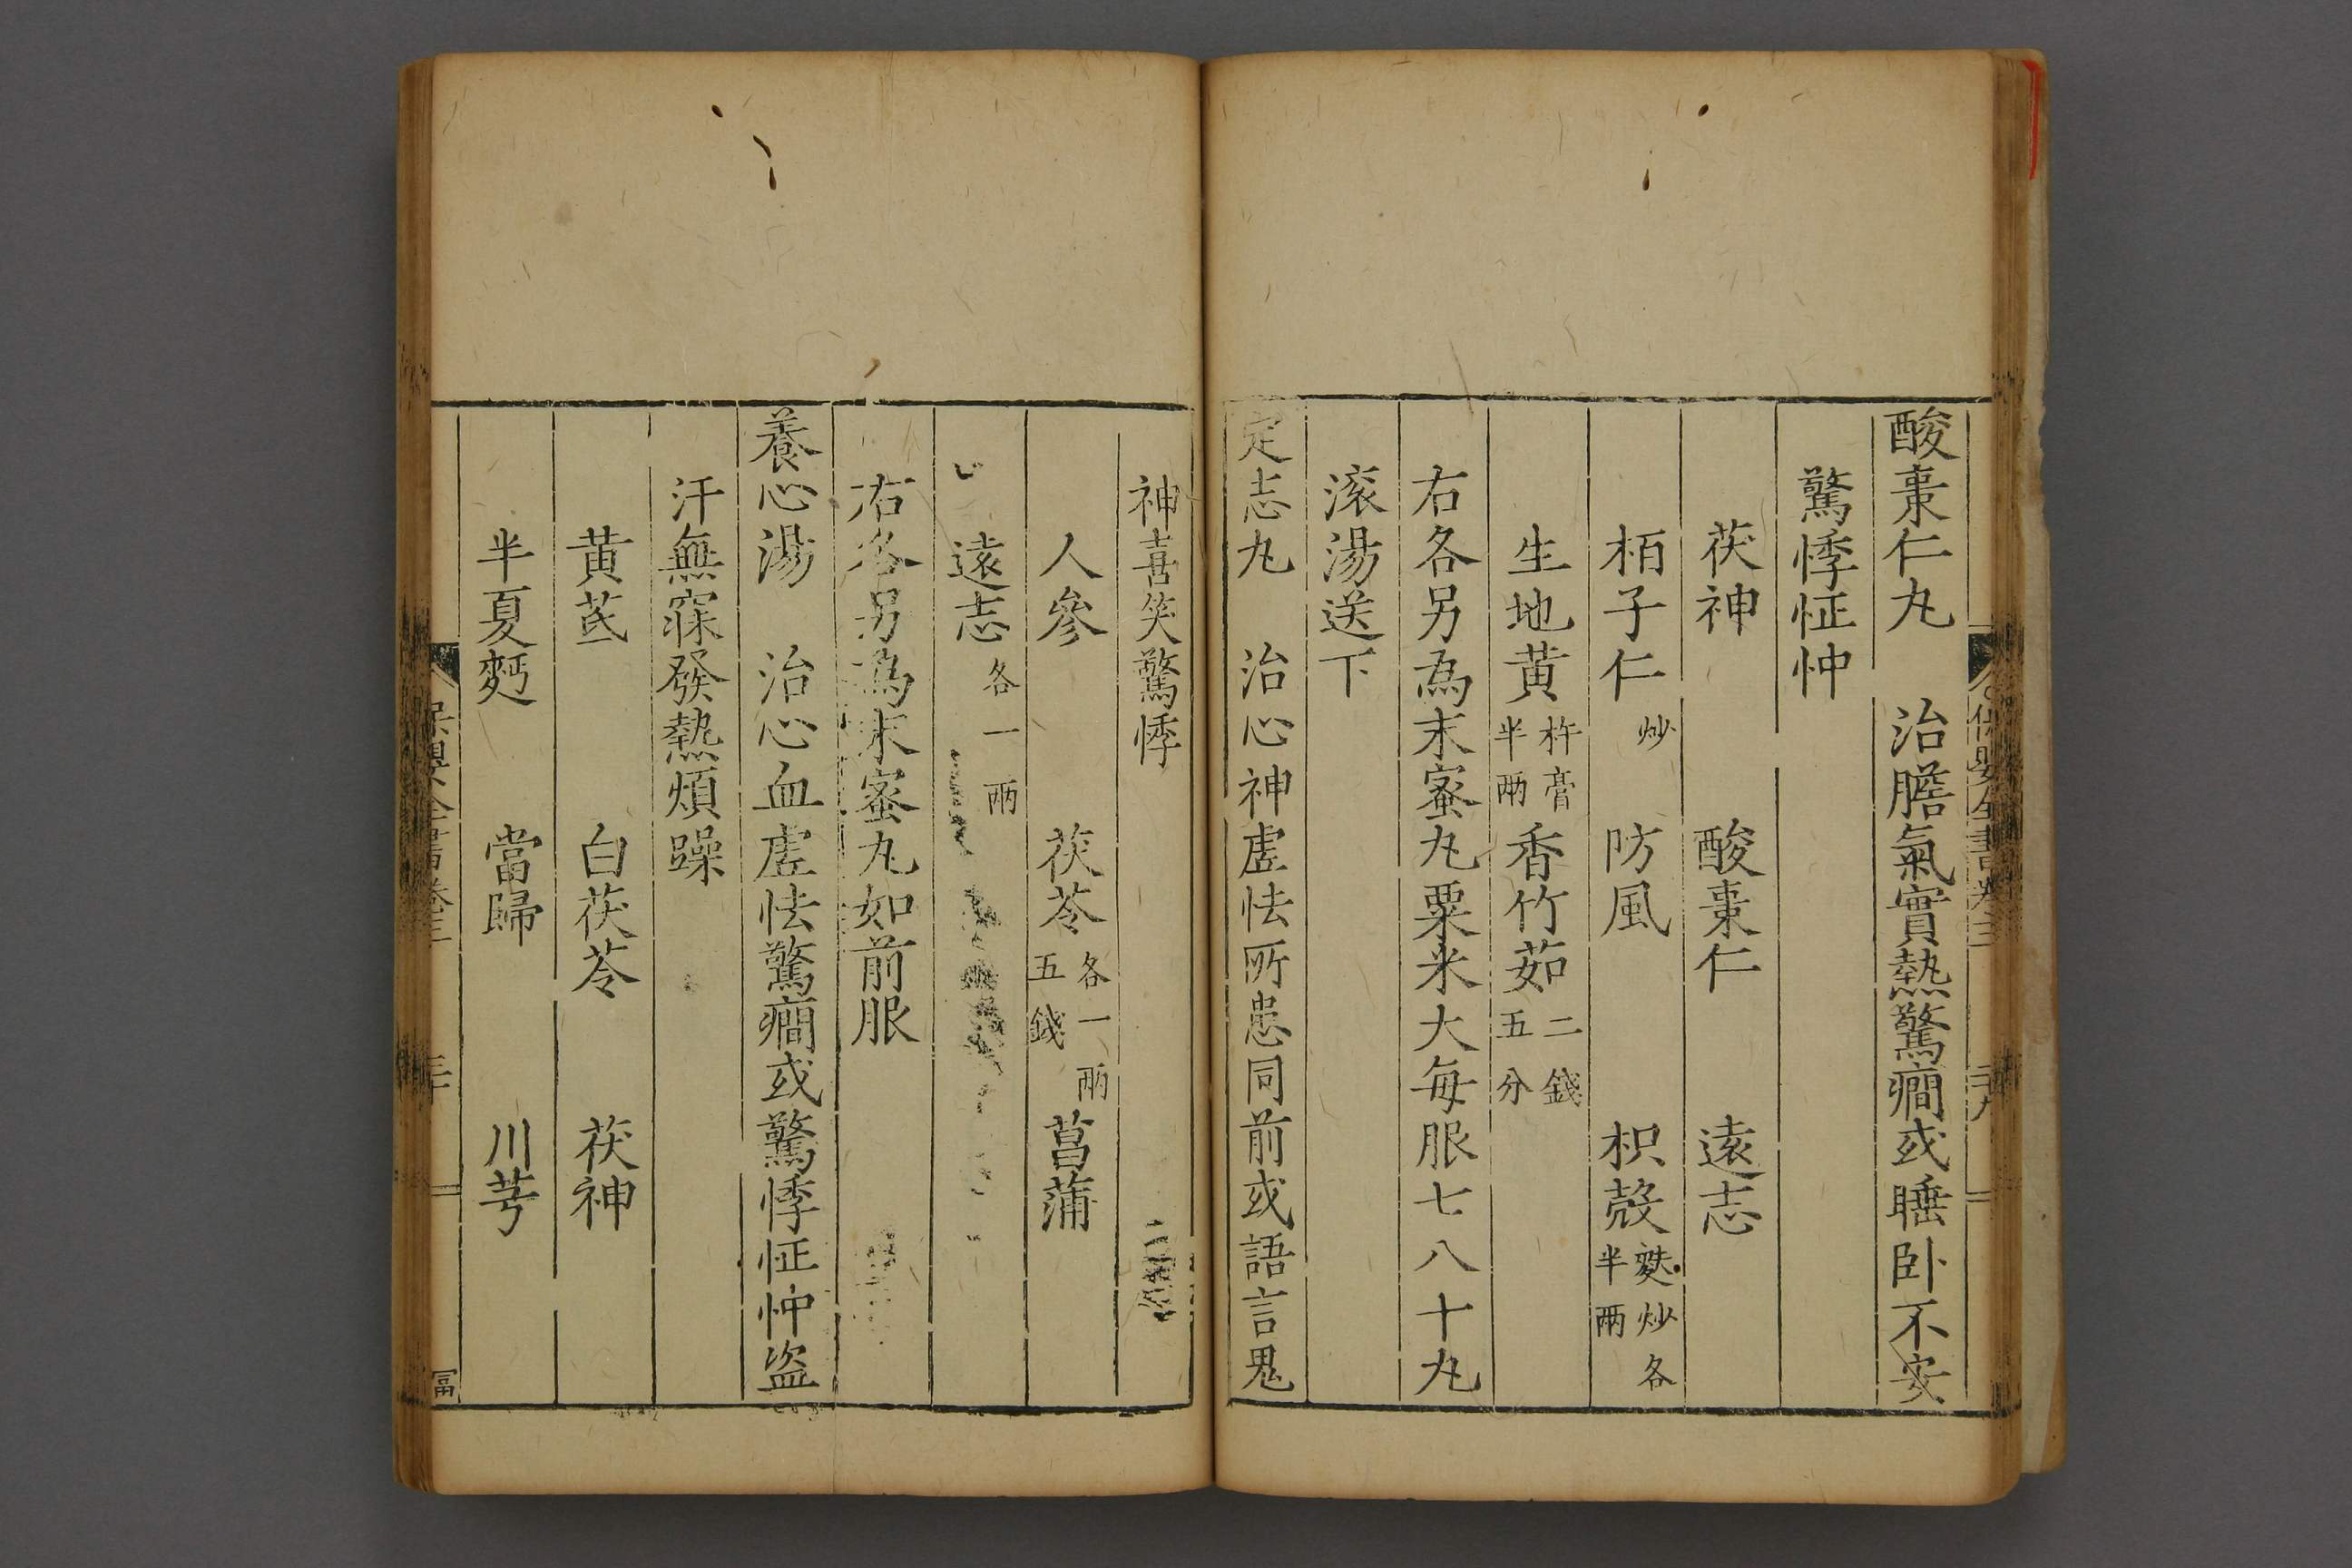 酸棗仁丸　治膽氣實熱驚癇或睡卧不安
驚悸怔忡
茯神　酸棗仁　遠志
栢子仁炒　防風　枳殼麩炒各半兩
生地黄杵膏半兩　香竹茹二錢五分
右各另為末蜜丸粟米大毎服七八十丸
滚湯送下
定志丸　治心神虗怯所患同前或語言鬼
神喜笑驚悸
人參　茯苓各一兩五錢　菖蒲
遠志各一兩
右各另為末蜜丸如前服
養心湯　治心血虗怯驚癇或驚悸怔忡盗
汗無寐發熱煩躁
黄芪　白茯苓　茯神
半夏麪　當歸　川芎
保嬰全書卷三